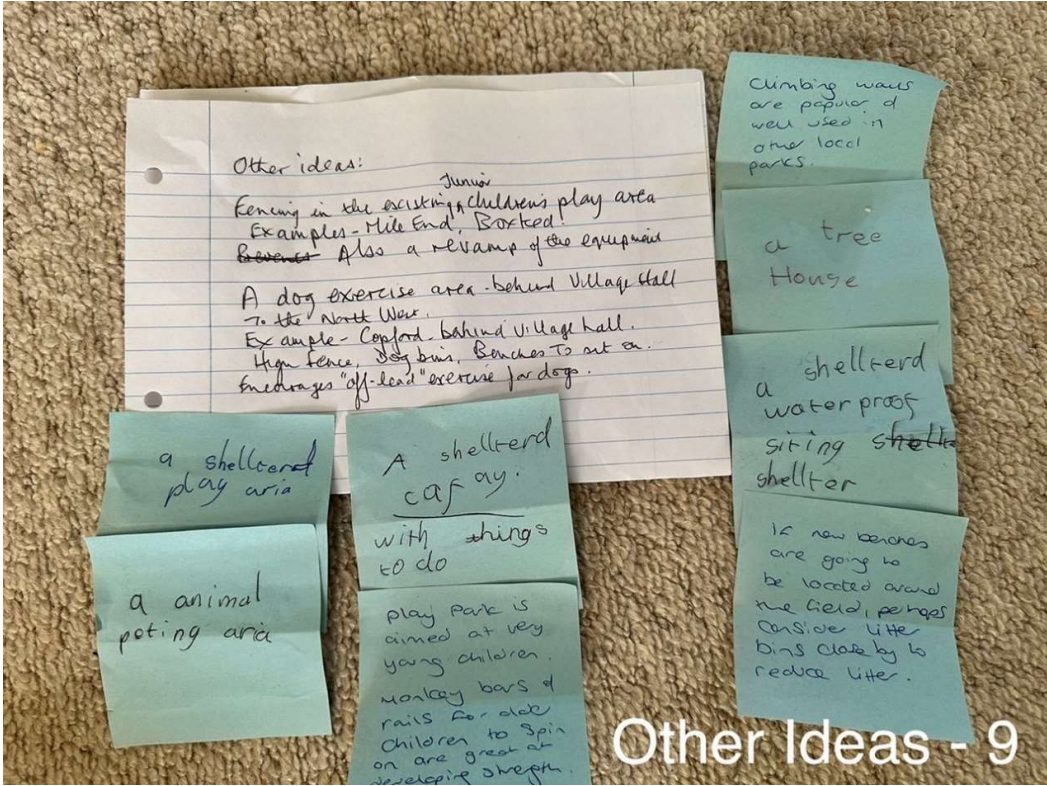 Other ideas:
Junior
Fencing in the existing children's play area
Examples - Mile End, Boxted.
Also a revamp of the equipment
A dog exercise area - behind Village Hall
To the North West.
Example - Copford - behind village hall.
High fence, Dog bins, Benches To sit on.
Encourages "off-lead" exercise for dogs.
a shellterd
play aria
a animal
peting aria
A shellterd
caf ay.
with things
to do
play park is
aimed at very
young children.
Monkey bars &
rails for older
children to spin
on are great at
developing strength.
Climbing walls
are popular &
well used in
other local
parks.
a tree
House
a shellterd
waterproof
siting shellte
shellter
If new benches
are going to
be located around
the field, perhaps
consider litter
bins close by to
reduce litter.
Other Ideas - 9